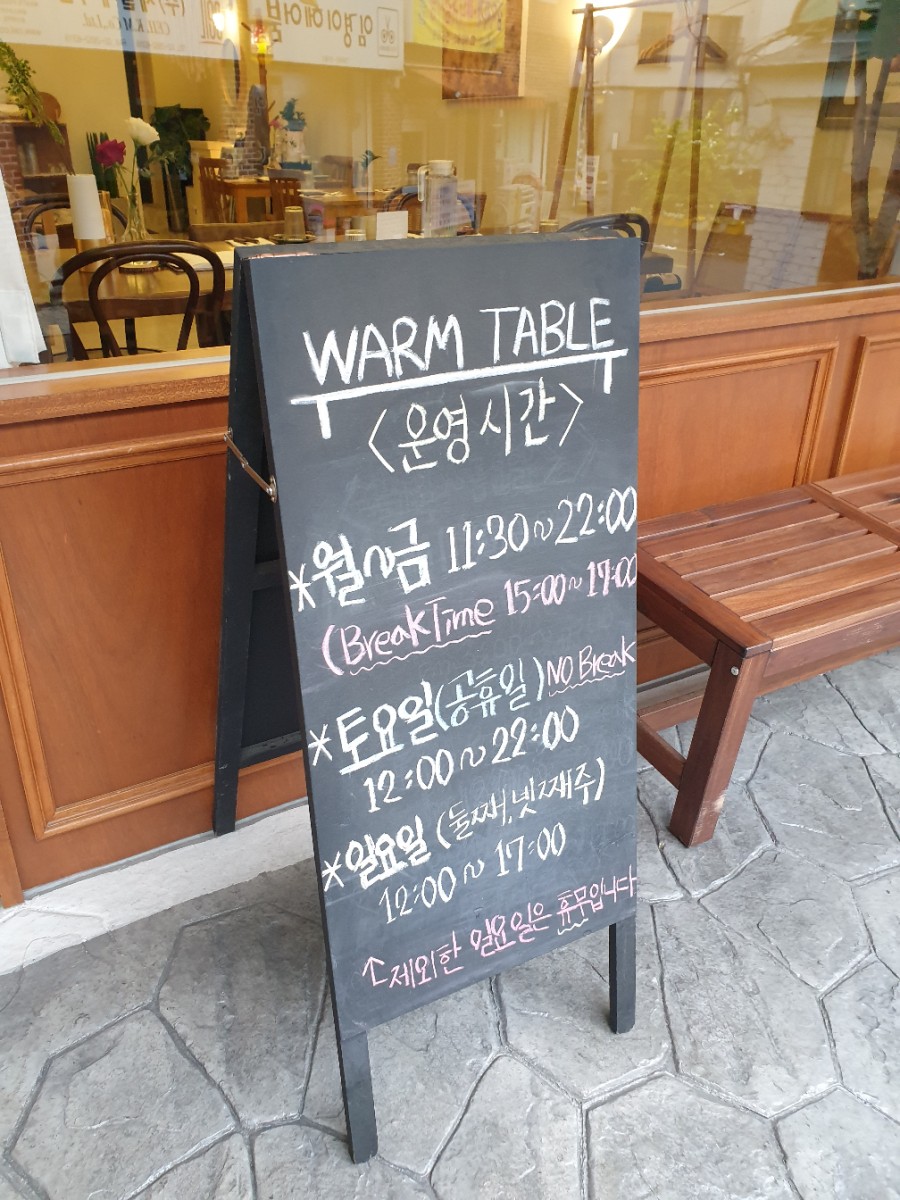 WARM TABLE
<운영시간>
*월~금 11:30~22:00
(BreakTime 15:00~17:00
*토요일(공휴일) NO Break
12:00~22:00
*일요일(둘째,넷째주)
12:00~17:00
↑제외한 일요일은 휴무입니다